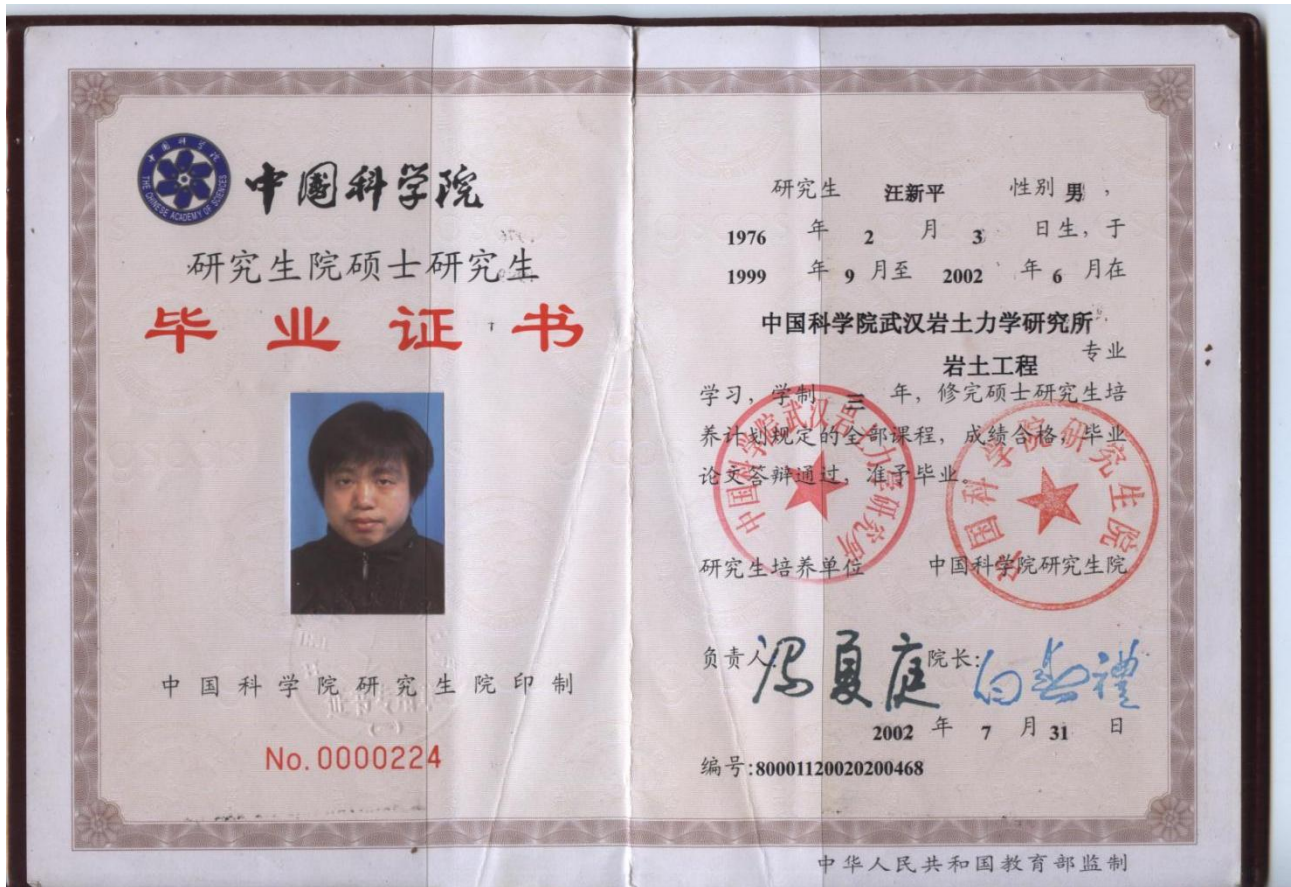 中国科学院
THE CHINESE ACADEMY OF SCIENCES
中国科学院
研究生院硕士研究生
毕业证书
中国科学院研究生院印制
No.0000224
研究生 汪新平 性别 男，
1976 年 2 月 3 日生，于
1999 年 9 月至 2002 年 6 月在
中国科学院武汉岩土力学研究所
岩土工程 专业
学习，学制 三 年，修完硕士研究生培
养计划规定的全部课程，成绩合格，毕业
论文答辩通过，准予毕业。
中国科学院武汉岩土力学研究所
中国科学院研究生院
研究生培养单位 中国科学院研究生院
负责人: 冯夏庭 院长: 白春禮
2002 年 7 月 31 日
编号:80001120020200468
中华人民共和国教育部监制